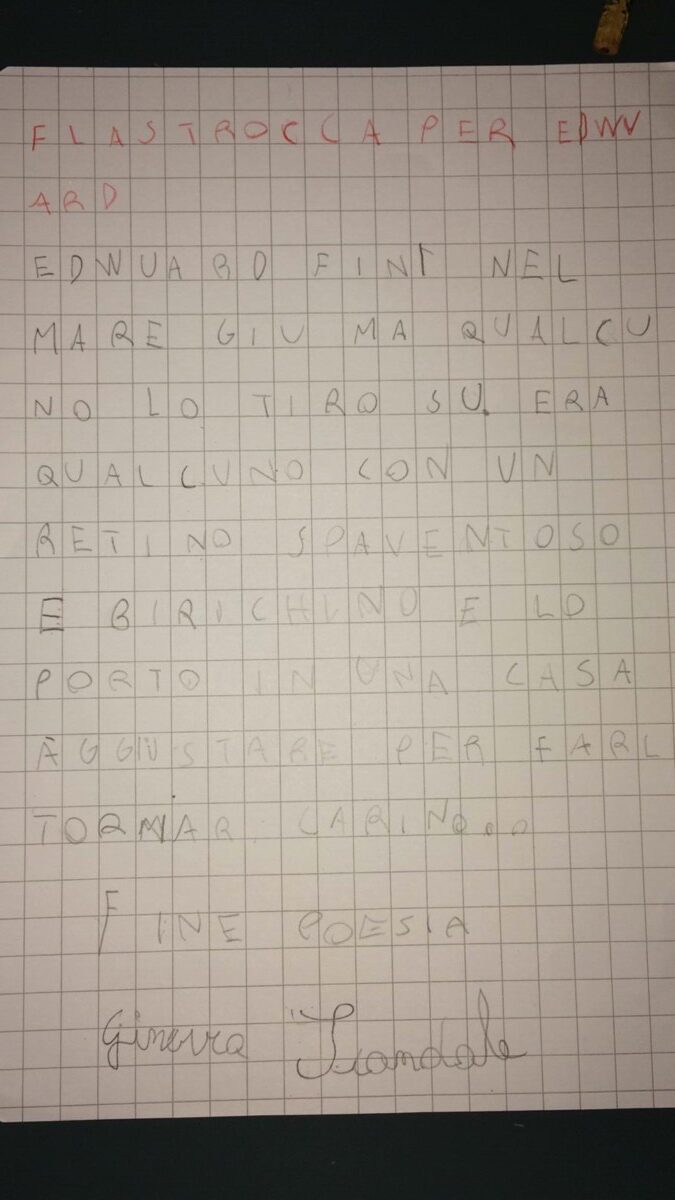 FLASTROCCA PER EDWU
ARD
EDWUARD FINI NEL
MARE GIU MA QUALCU
NO LO TIRO SU. ERA
QUALCUNO CON UN
RETINO SPAVENTOSO
E BIRICHINO E LO
PORTO IN UNA CASA
AGGIUSTARE PER FARL
TORNAR CARINO...
FINE POESIA
Ginevra